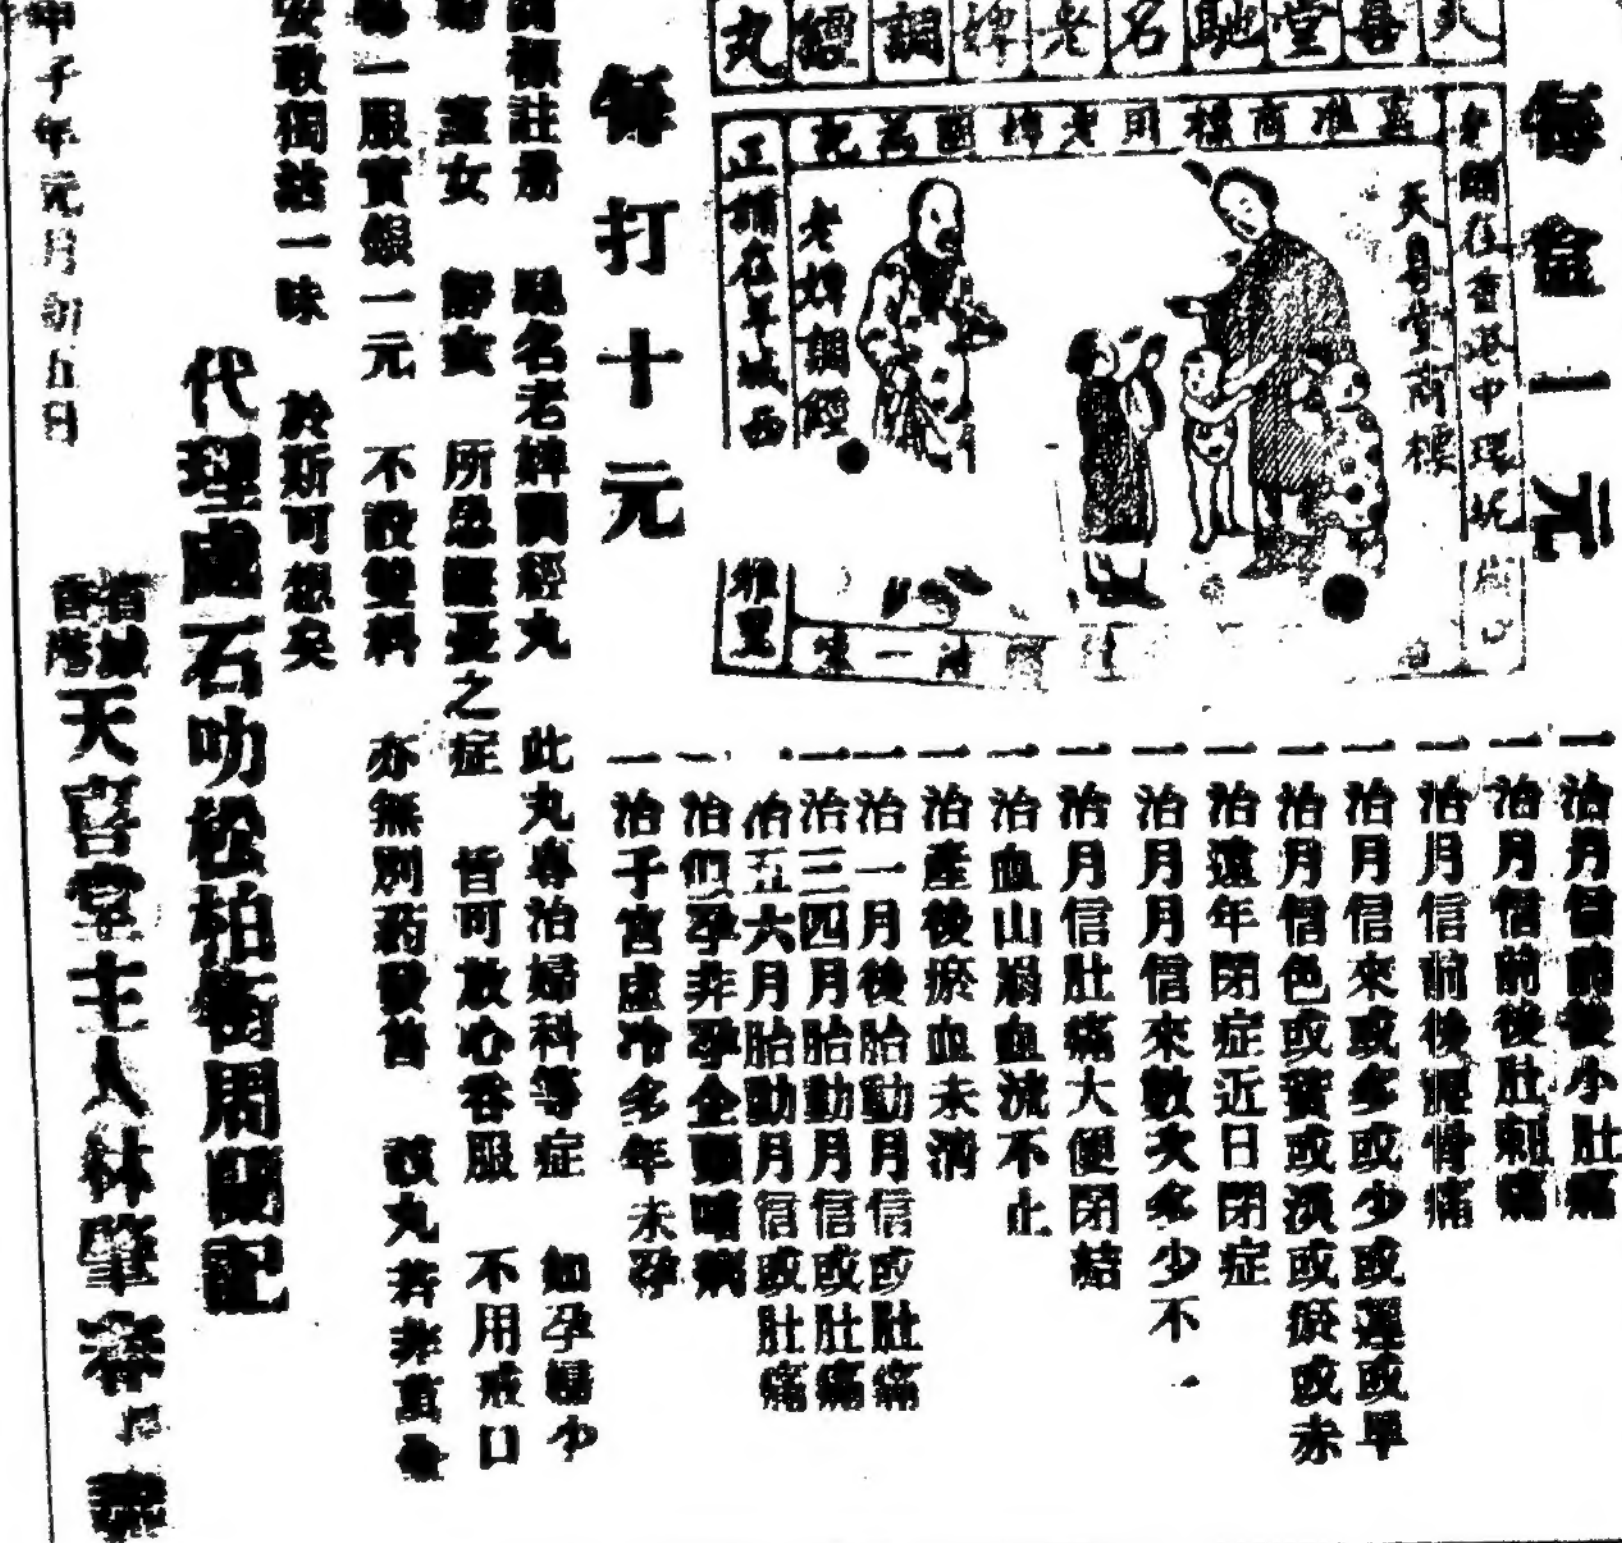 天喜堂馳名老婢調經丸
每盒一元
老鋪在香港中環坑
天喜堂商標
蒙准商標用老婢圖為記
老婢調經
正鋪在羊城西
雅里
每打十元
一治月信前後小肚痛
一治月信前後肚刺痛
一治月信前後腰骨痛
一治月信來或多或少或遲或早
一治月信色或黃或淡或瘀或赤
一治遠年閉症近日閉症
一治月月信來數次多少不一
一治月信肚痛大便閉結
一治血山崩血流不止
一治產後瘀血未淸
一治一月後胎動月信或肚痛
一治三四月胎動月信或肚痛
治五六月胎動月信或肚痛
一治假孕非孕全頭暗病
一治子宮虛冷多年未孕
商標註册 馳名老婢調經丸 此丸專治婦科等症 如孕婦少
婦 室女 靜女 所患憂之症 皆可放心吞服 不用戒口
一服實銀一元 不設雙料 亦無別葯發售 該丸若非貴重
安敢獨沽一味 於斯可想矣
代理處石叻松柏街周蘭記
省城香港天喜堂主人林肇春
甲子年元月初五日